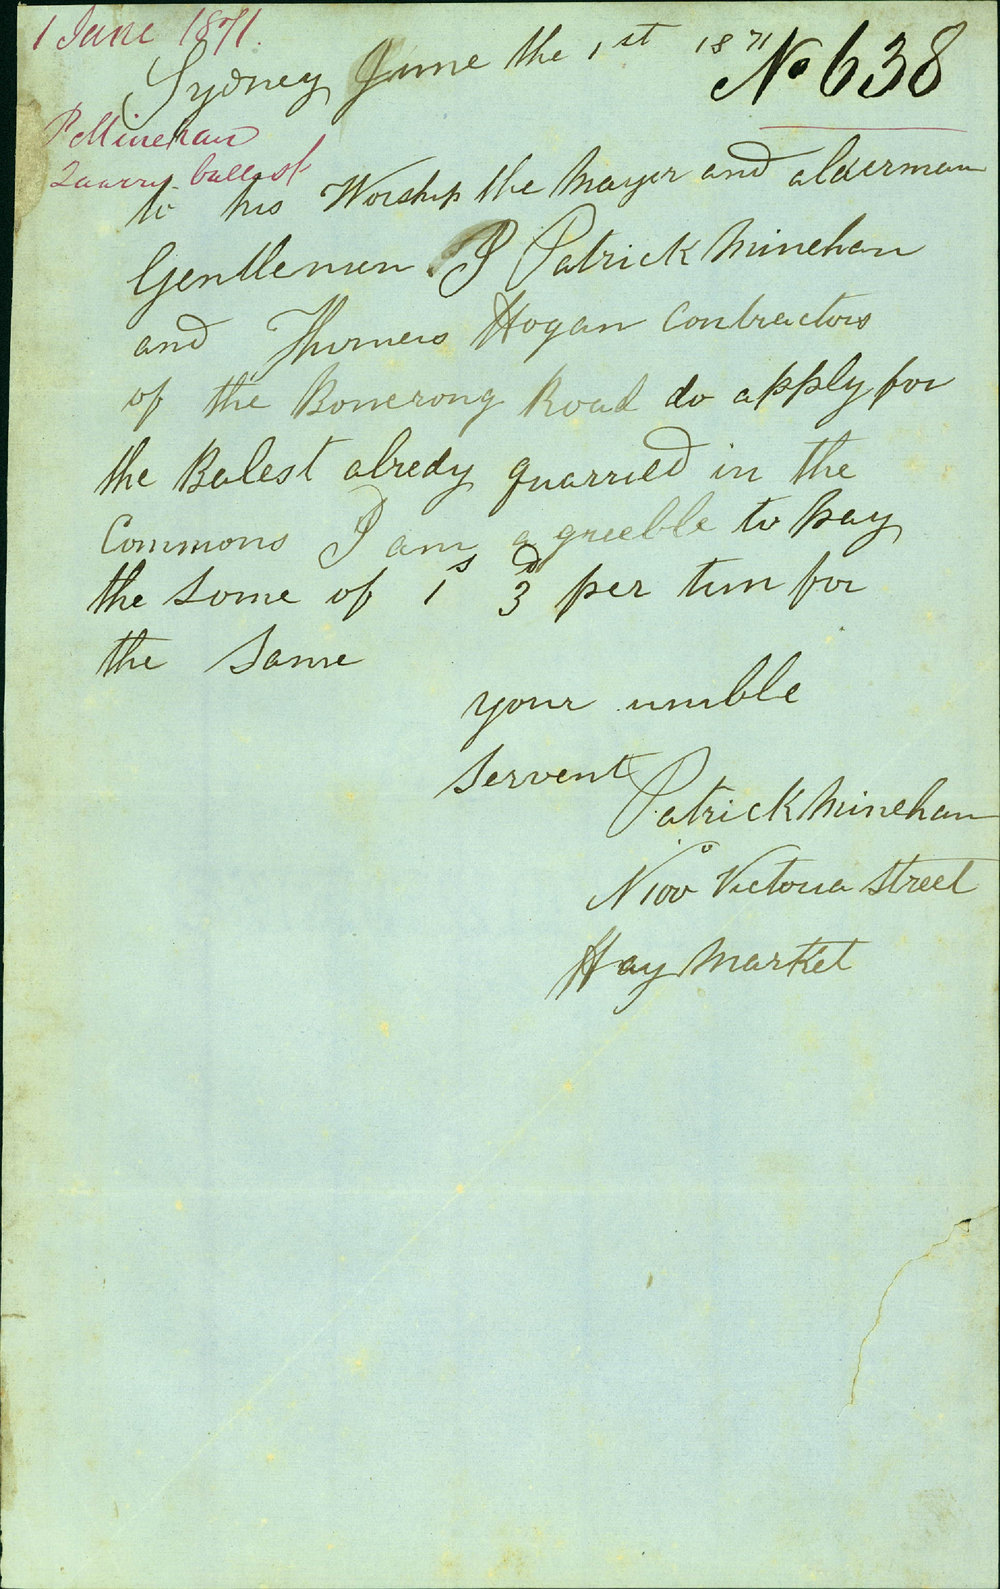 1 June 1871.
Sydney June the 1st 1871
No 638
P Minehan
Quarry ballast
to his Worship the Mayer and alderman
Gentlemen I Patrick Minehan
and Thomas Hogan Contractors
of the Bonerong Road do apply for
the Balest alredy quarried in the
Commons I am agreeble to pay
the some of 1s 3d per tun for
the same
your umble
servent
Patrick Minehan
No 100 Victoria Street
Hay Market